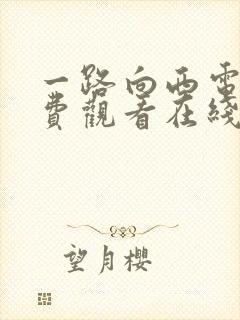 一路向西電
費觀看在綫
望月櫻